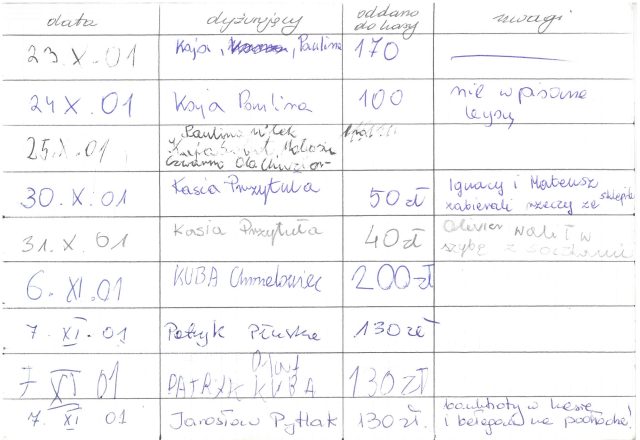 data dyżurujący oddano do kasy uwagi
23.X.01 Kaja, Paulina 170
24 X. 01 Kaja Paulina 100 nie wpisane
25.X.01 Paulina
30.X.01 Kasia Przytuła 50 zł Ignacy i Mateusz
zabierali rzeczy ze sklepiku
31.X.01 Kasia Przytuła 40 zł Olivier walił w
szybę z
6.XI.01 KUBA Chmielowiec 200 zł
7.XI.01 Patryk 130 zł
7 XI 01 PATRYK KUBA 130 zł
7. XI 01 Jarosław Pytlak 130 zł. banknoty w kasie
i bałagan na podłodze!